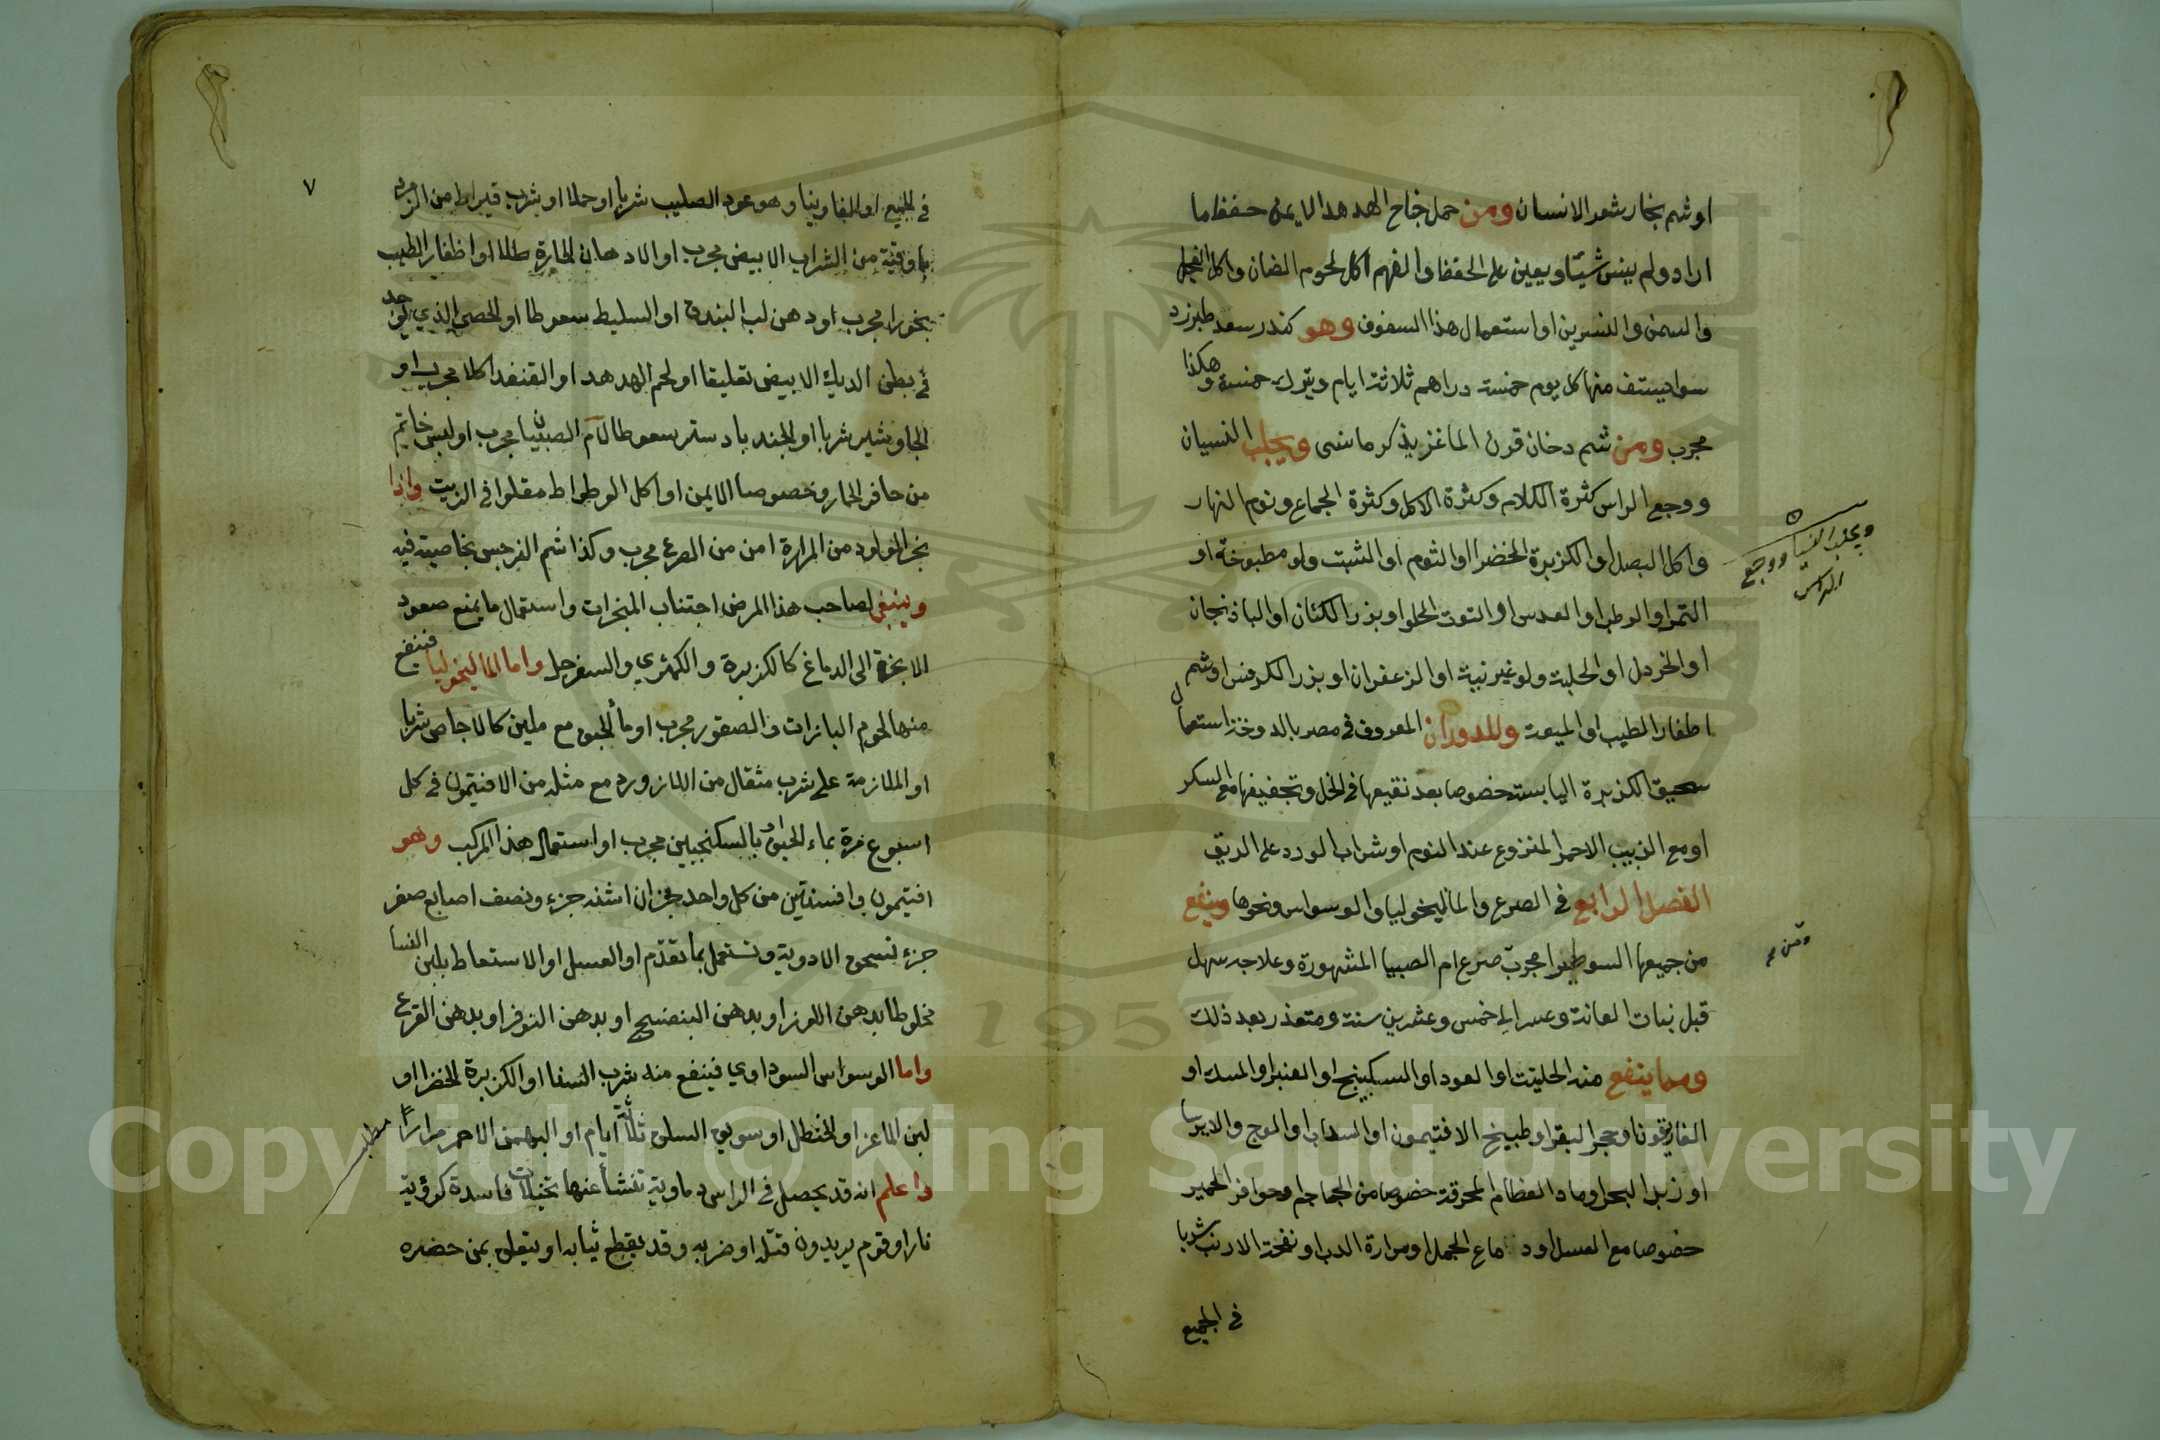 او شم بخار شعر الانسان ومن حمل جناح الهدهد الايمن حفظ ما
اراد ولم ينس شيئا ويعين على الحفظ والفهم اكل لحوم الضان واكل الفجل
والسمن والنسرين او استعمال هذا السفوف وهو كندر سعد طبرزد
سوا يستف منها كل يوم خمسة دراهم ثلاثة ايام ويترك خمسة وهكذا
مجرب ومن شم دخان قرن الماعز يذكر ما نسى ويجلب النسيان
ووجع الراس كثرة الكلام وكثرة الاكل وكثرة الجماع ونوم النهار
واكل البصل او الكزبرة الخضرا او الثوم او الشبت ولو مطبوخة او
التمر او الرطب او العدس او التوت الحلو او بزر الكتان او الباذنجان
او الخردل او الحلبة ولو غير نيية او الزعفران او بزر الكرفس او شم
اظفار الطيب او الميعة وللدوران المعروف في مصر بالدوخة استعمال
سحيق الكزبرة اليابسة خصوصا بعد نقيعها في الخل وتجفيفها مع السكر
او مع الزبيب الاحمر المنزوع عند النوم او شراب الورد على الريق
الفصل الرابع في الصرع والماليخوليا والوسواس ونحوها وينفع
من جميعها السوطيرا مجرب صرع ام الصبيا المشهورة وعلاجه سهل
قبل نبات العانة وعسر الى خمس وعشرين سنة ومتعذر بعد ذلك
ومما ينفع منه الحلتيت او العود او السكبينج او العنبر او المسك او
الغاريقونا وحجر البقر او طبيخ الافتيمون او السداب او الوج والايرسا
او زبد البحر او رماد العظام المحرقة خصوصا من الجماجم وحوافر الحمير
خصوصا مع العسل او دماع الجمل او مرارة الدب او نفحة الارنب شربا
في الجميع
ويجلب النسيا ووجع
الراس
٧
في الجميع او الفاوينا وهو عود الصليب شربا او حملا او شرب قيراط من الزمرد
باوقية من الشراب الابيض مجرب او الادهان الحارة طلا او اظفار الطيب
بخورا مجرب او دهن لب البندق او السليط سعوطا او الحصى الذي يوجد
في بطن الديك الابيض تعليقا او لحم الهدهد او القنفد اكلا مجرب او
الجاوشير شربا او الجندبادستر سعوطا لام الصبيان مجرب او لبس خاتم
من حافر الحمار وخصوصا الايمن او اكل الوطواط مقلوا في الزيت واذا
بخر المولود من المرارة امن من الصرع مجرب وكذا شم النرجس بخاصية فيه
وينبغي لصاحب هذا المرض اجتناب المبخرات واستعمال ما يمنع صعود
الابخرة الى الدماغ كالكزبرة والكمثري والسفرجل واما الماليخوليا فينفع
منها لحوم البازات والصقور مجرب او ماء الجبن مع ملين كالاجاص شربا
او الملازمة على شرب مثقال من اللازورد مع مثله من الافتيمون في كل
اسبوع مرة بماء الجبن او بالسكنجبين مجرب او استعمال هذا المركب وهو
افتيمون وافسنتين من كل واحد جزان اشنه جزء ونصف اصابع صفر
جزء تسحق الادوية وتستعمل بما تقدم او العسل او الاستعاط بلبن النسا
مخلوطا بدهن اللوز او بدهن البنفسج او بدهن النوفر او بدهن القرع
واما الوسواس السوداوي فينفع منه شرب السنا او الكزبرة الخضرا او
لبن الماعز او الحنطل او سويق السلق ثلاثة ايام او البهمن الاحمر مرارًا
واعلم انه قد يحصل في الراس دماوية تنشأ عنها تخيلات فاسدة كرؤية
نار او قوم يريدون قتله او ضربه وقد يقطع ثيابه او يتعلق بمن حضره
مطلب
Copyright © King Saud University
1957